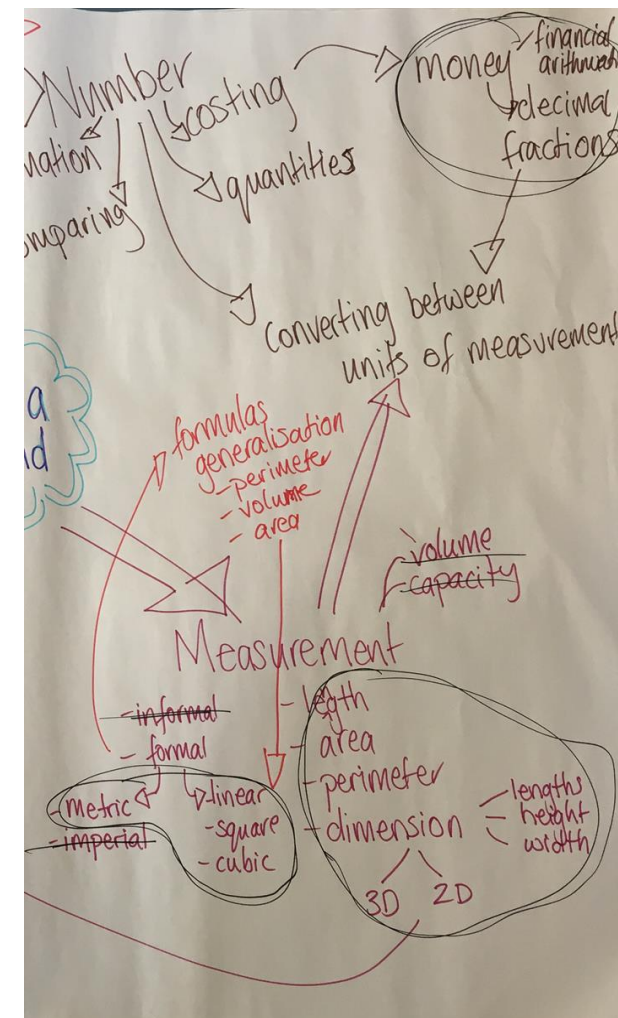 Number
costing
money
financial
arithmetic
decimal
fractions
mation
quantities
omparing
converting between
units of measurement
a
d
formulas
generalisation
- perimeter
- volume
- area
volume
- capacity
Measurement
- informal
- formal
- metric
- imperial
linear
- square
- cubic
- legth
- area
- perimeter
- dimension
lengths
height
width
3D
2D